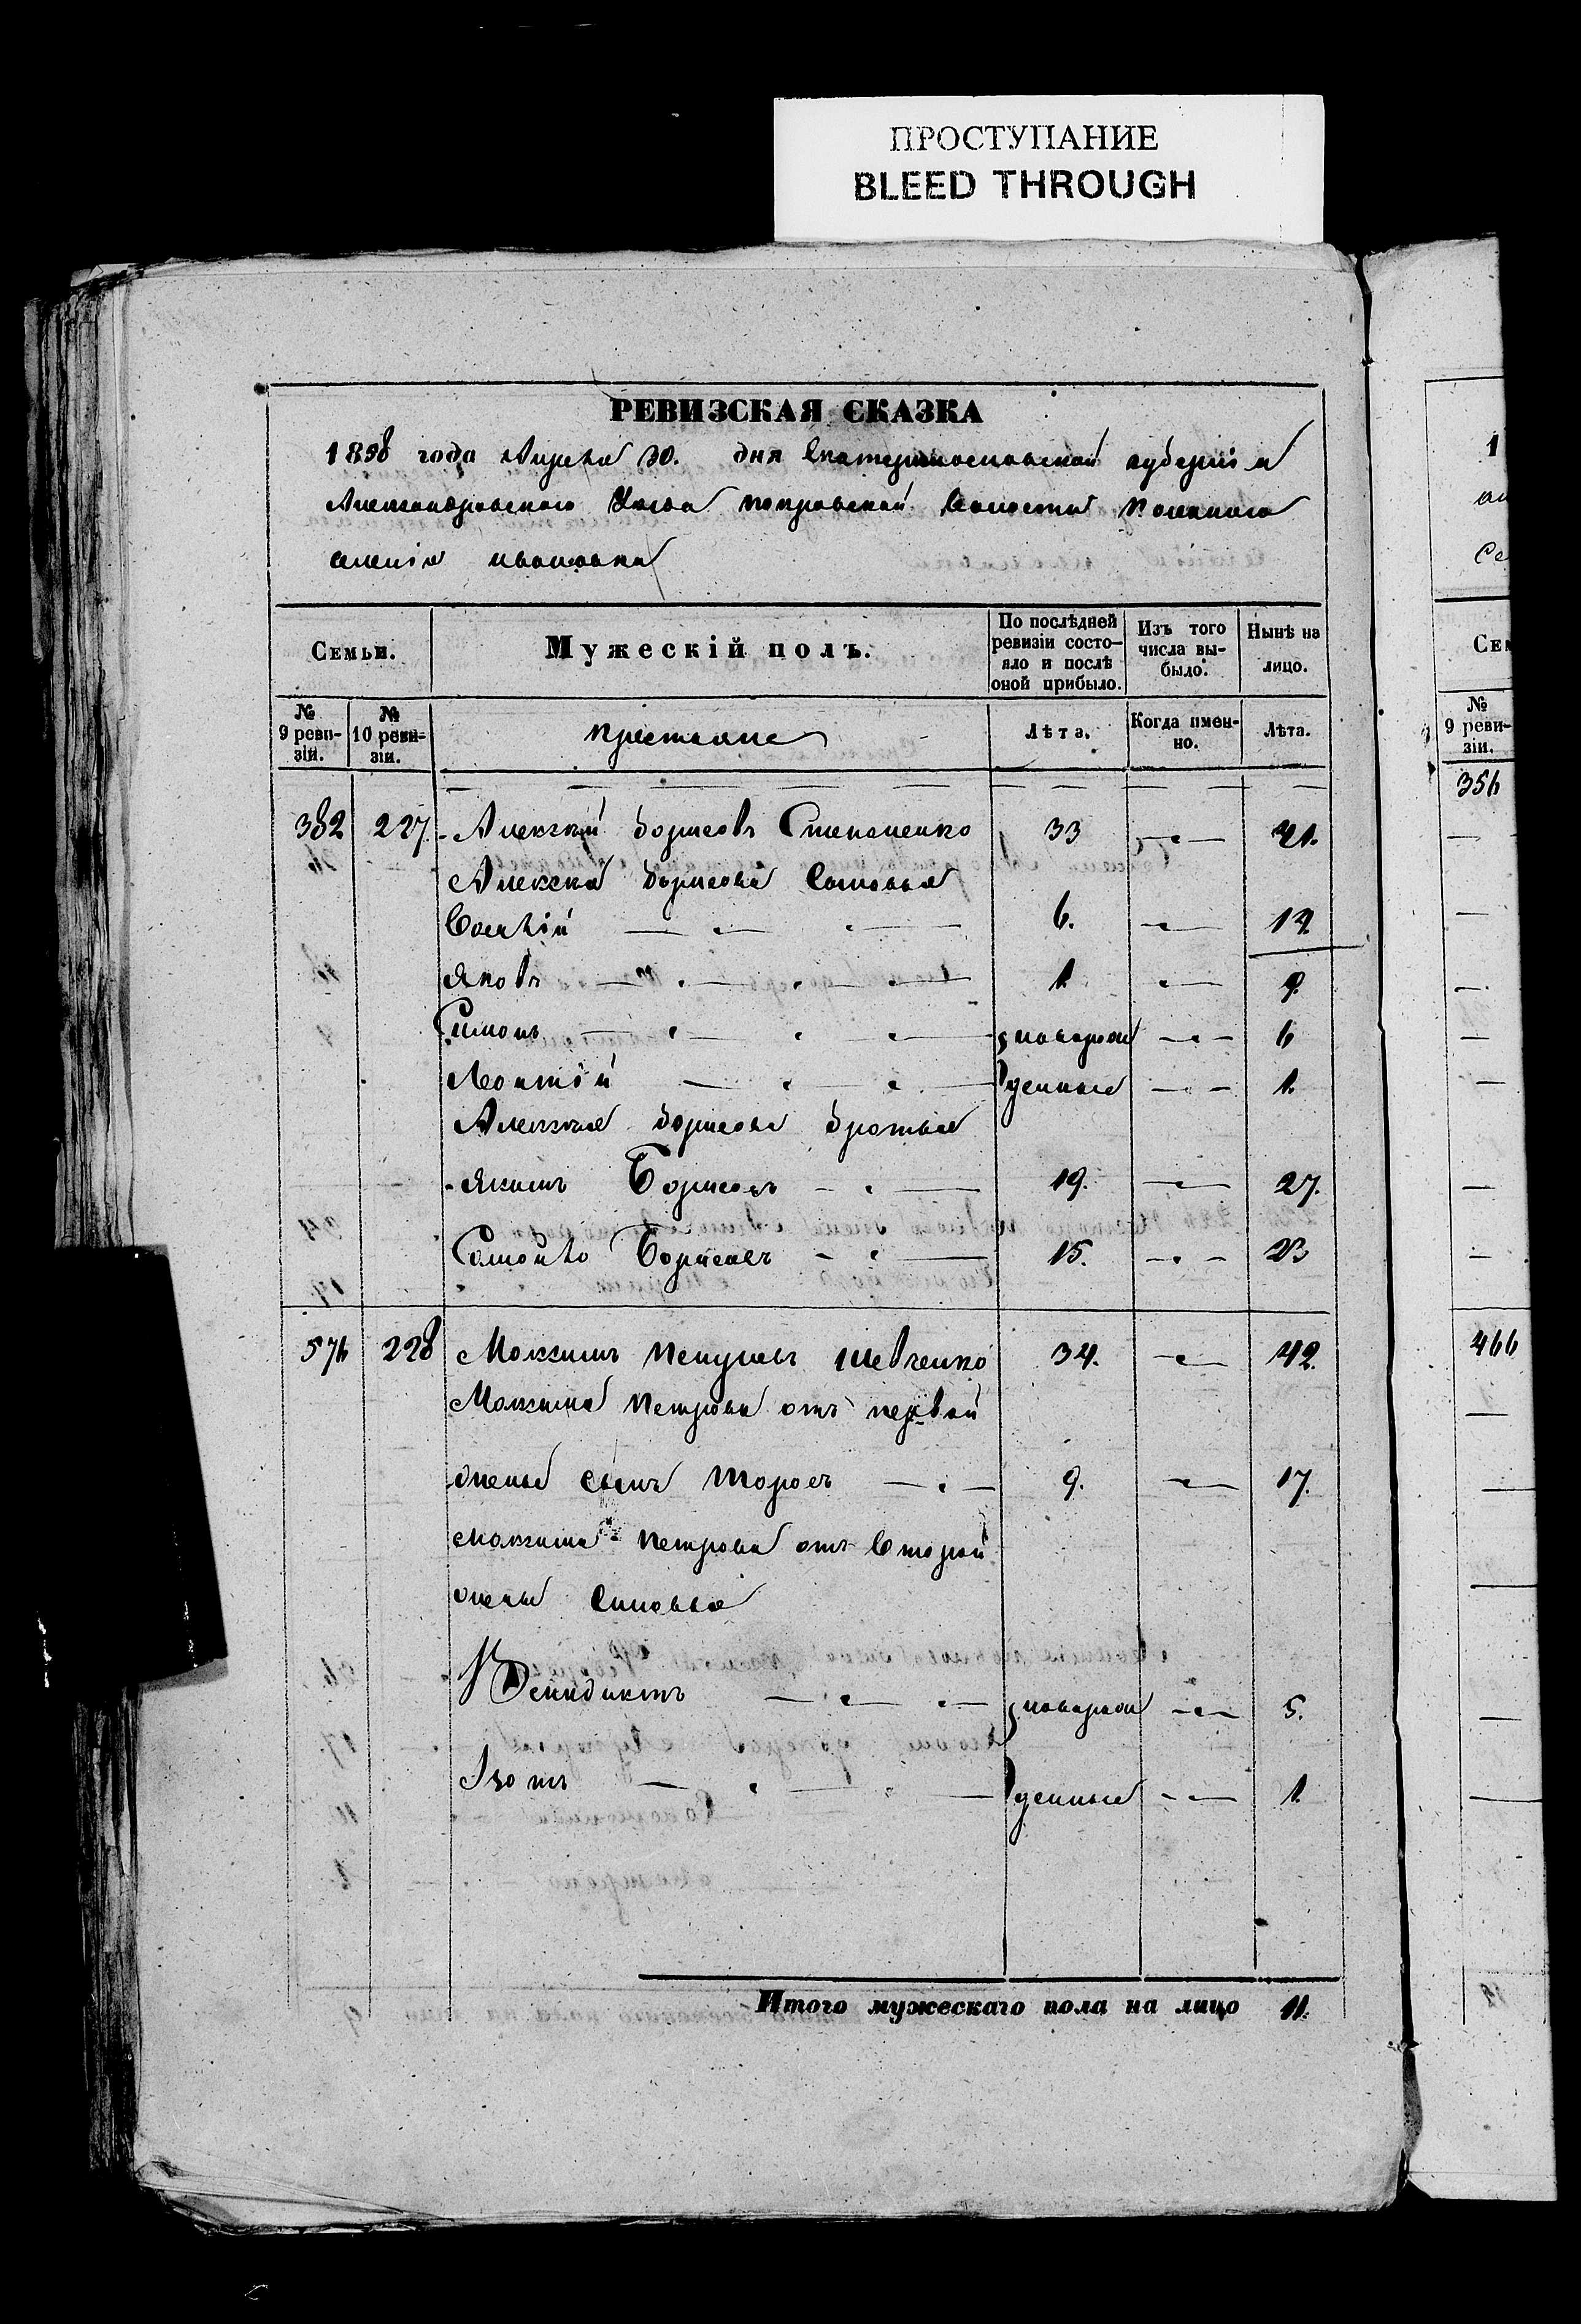 ПРОСТУПАНИЕ
BLEED THROUGH
РЕВИЗСКАЯ СКАЗКА
1858 года Апреля 30. дня Екатеринославской губерніи
Александровскаго Уезда покровской Волости Казеннаго
селенія
Семьи.
Мужескій полъ.
По послѣдней ревизіи состо-
яло и послѣ
оной прибыло.
Изъ того
числа вы-
было.
Нынѣ на
лицо.
№
9 реви-
зіи.
№
10 реви-
зіи.
крестьяне
Лѣта.
Когда имен-
но.
Лѣта.
382 227. Алексѣй Борисовъ Степаненко 33 41.
Алексея Борисова Сыновья
6. 14.
Яковъ 1. 9.
Симонъ новорож 6
Леонтій денные 1.
Алексея Борисова братья
Якимъ Борисовъ 19. 27.
Самойло Борисовъ 15. 23
576 228 Максимъ Петровъ Шевченко 34. 42.
Максима Петрова отъ первой
жены сынъ Тарасъ 9. 17.
Максима Петрова отъ Второй
жены Синовья
Венидиктъ новорож 5.
Изотъ денные 1.
Итого мужескаго пола на лицо 11.
1
Се
№
9 реви-
зіи.
356
466